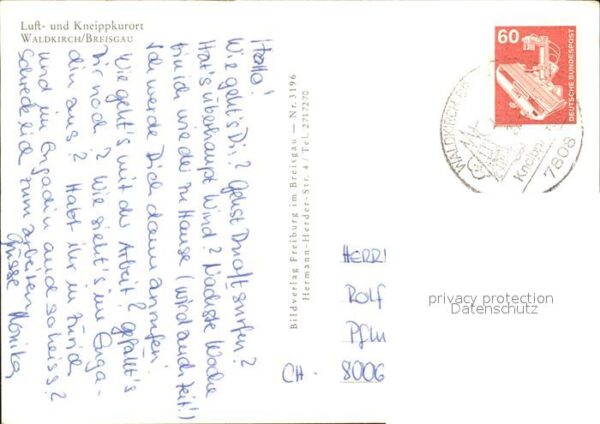 Luft- und Kneippkurort
WALDKIRCH/BREISGAU
Hallo!
Wie geht's Dir? Gehst Du oft surfen?
Hat's überhaupt Wind? Nächste Woche
bin ich wieder zu Hause (wird auch Zeit!)
Ich werde Dich dann anrufen.
Wie geht's mit der Arbeit? Gefällt's
Dir noch? Wie sieht's im Enga-
din aus? Habt ihr in Zürich
und im Engadin auch so heiss?
Schrecklich zum arbeiten.
Grüsse Monika
Bildverlag Freiburg im Breisgau — Nr. 3196
Hermann-Herder-Str. 4 Tel. 2717270
60
DEUTSCHE BUNDESPOST
WALDKIRCH
Kneipp
7808
HERRN
Rolf
CH - 8006
privacy protection
Datenschutz